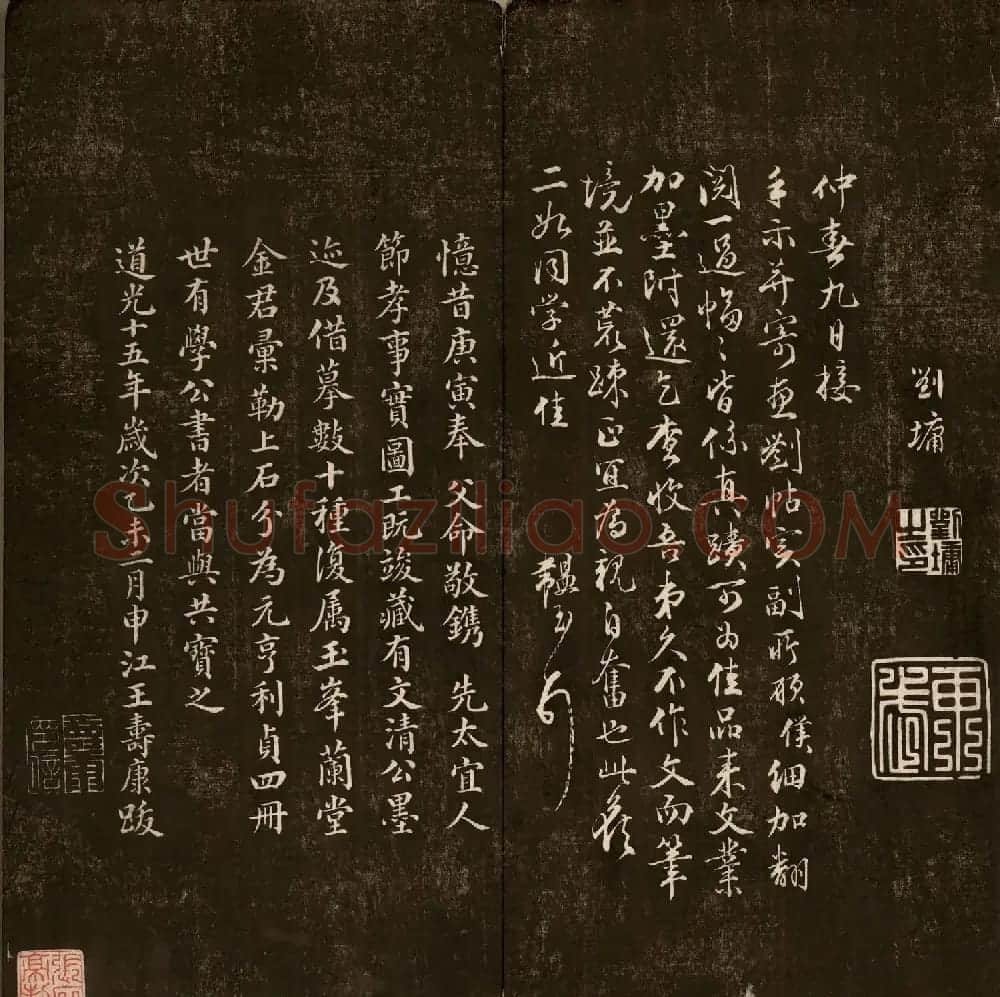 劉墉
劉墉之印
東武
仲春九日接
手示并寄惠劉帖実副所願僕細加翻
閲一過幅〻皆係真蹟可为佳品来文業
加墨附還乞查收吾弟久不作文而筆
境並不荒踈正宜為親自奮也此候
二如同学近佳 韞玉
憶昔庚寅奉 父命敬鐫 先太宜人
節孝事實圖工既竣藏有文清公墨
迹及借摹數十種復属玉峯蘭堂
金君彙勒上石分為元亨利貞四冊
世有學公書者當與共寶之
道光十五年歲次乙未二月申江王壽康跋
Shufaziliao.COM